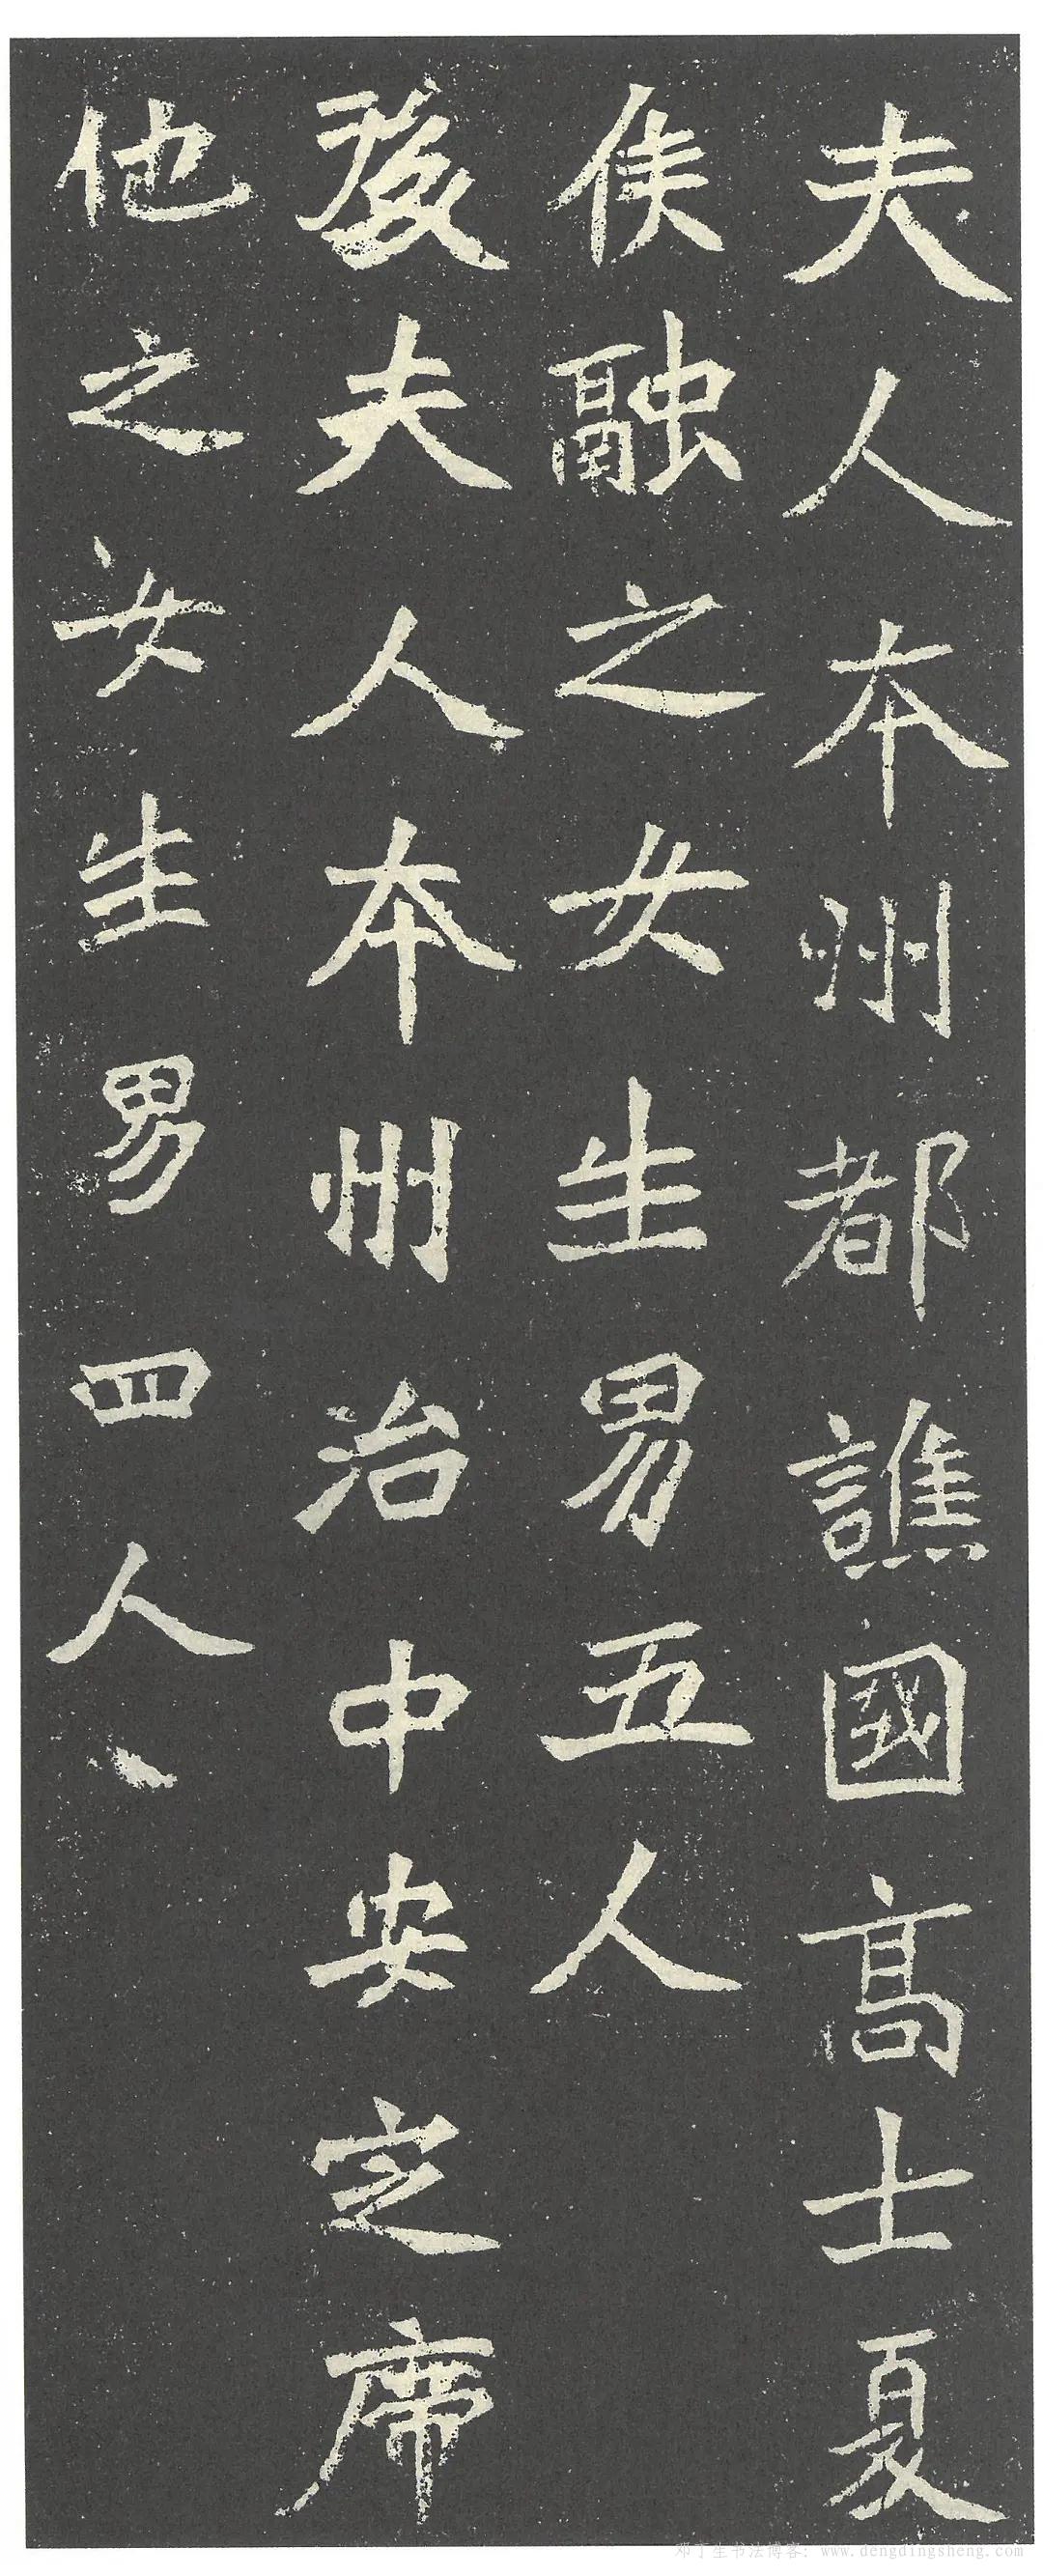 夫人本州都譙國高士夏
侯融之女生男五人
後夫人本州治中安定席
他之女生男四人
邓丁生书法博客: www.dengdingsheng.com